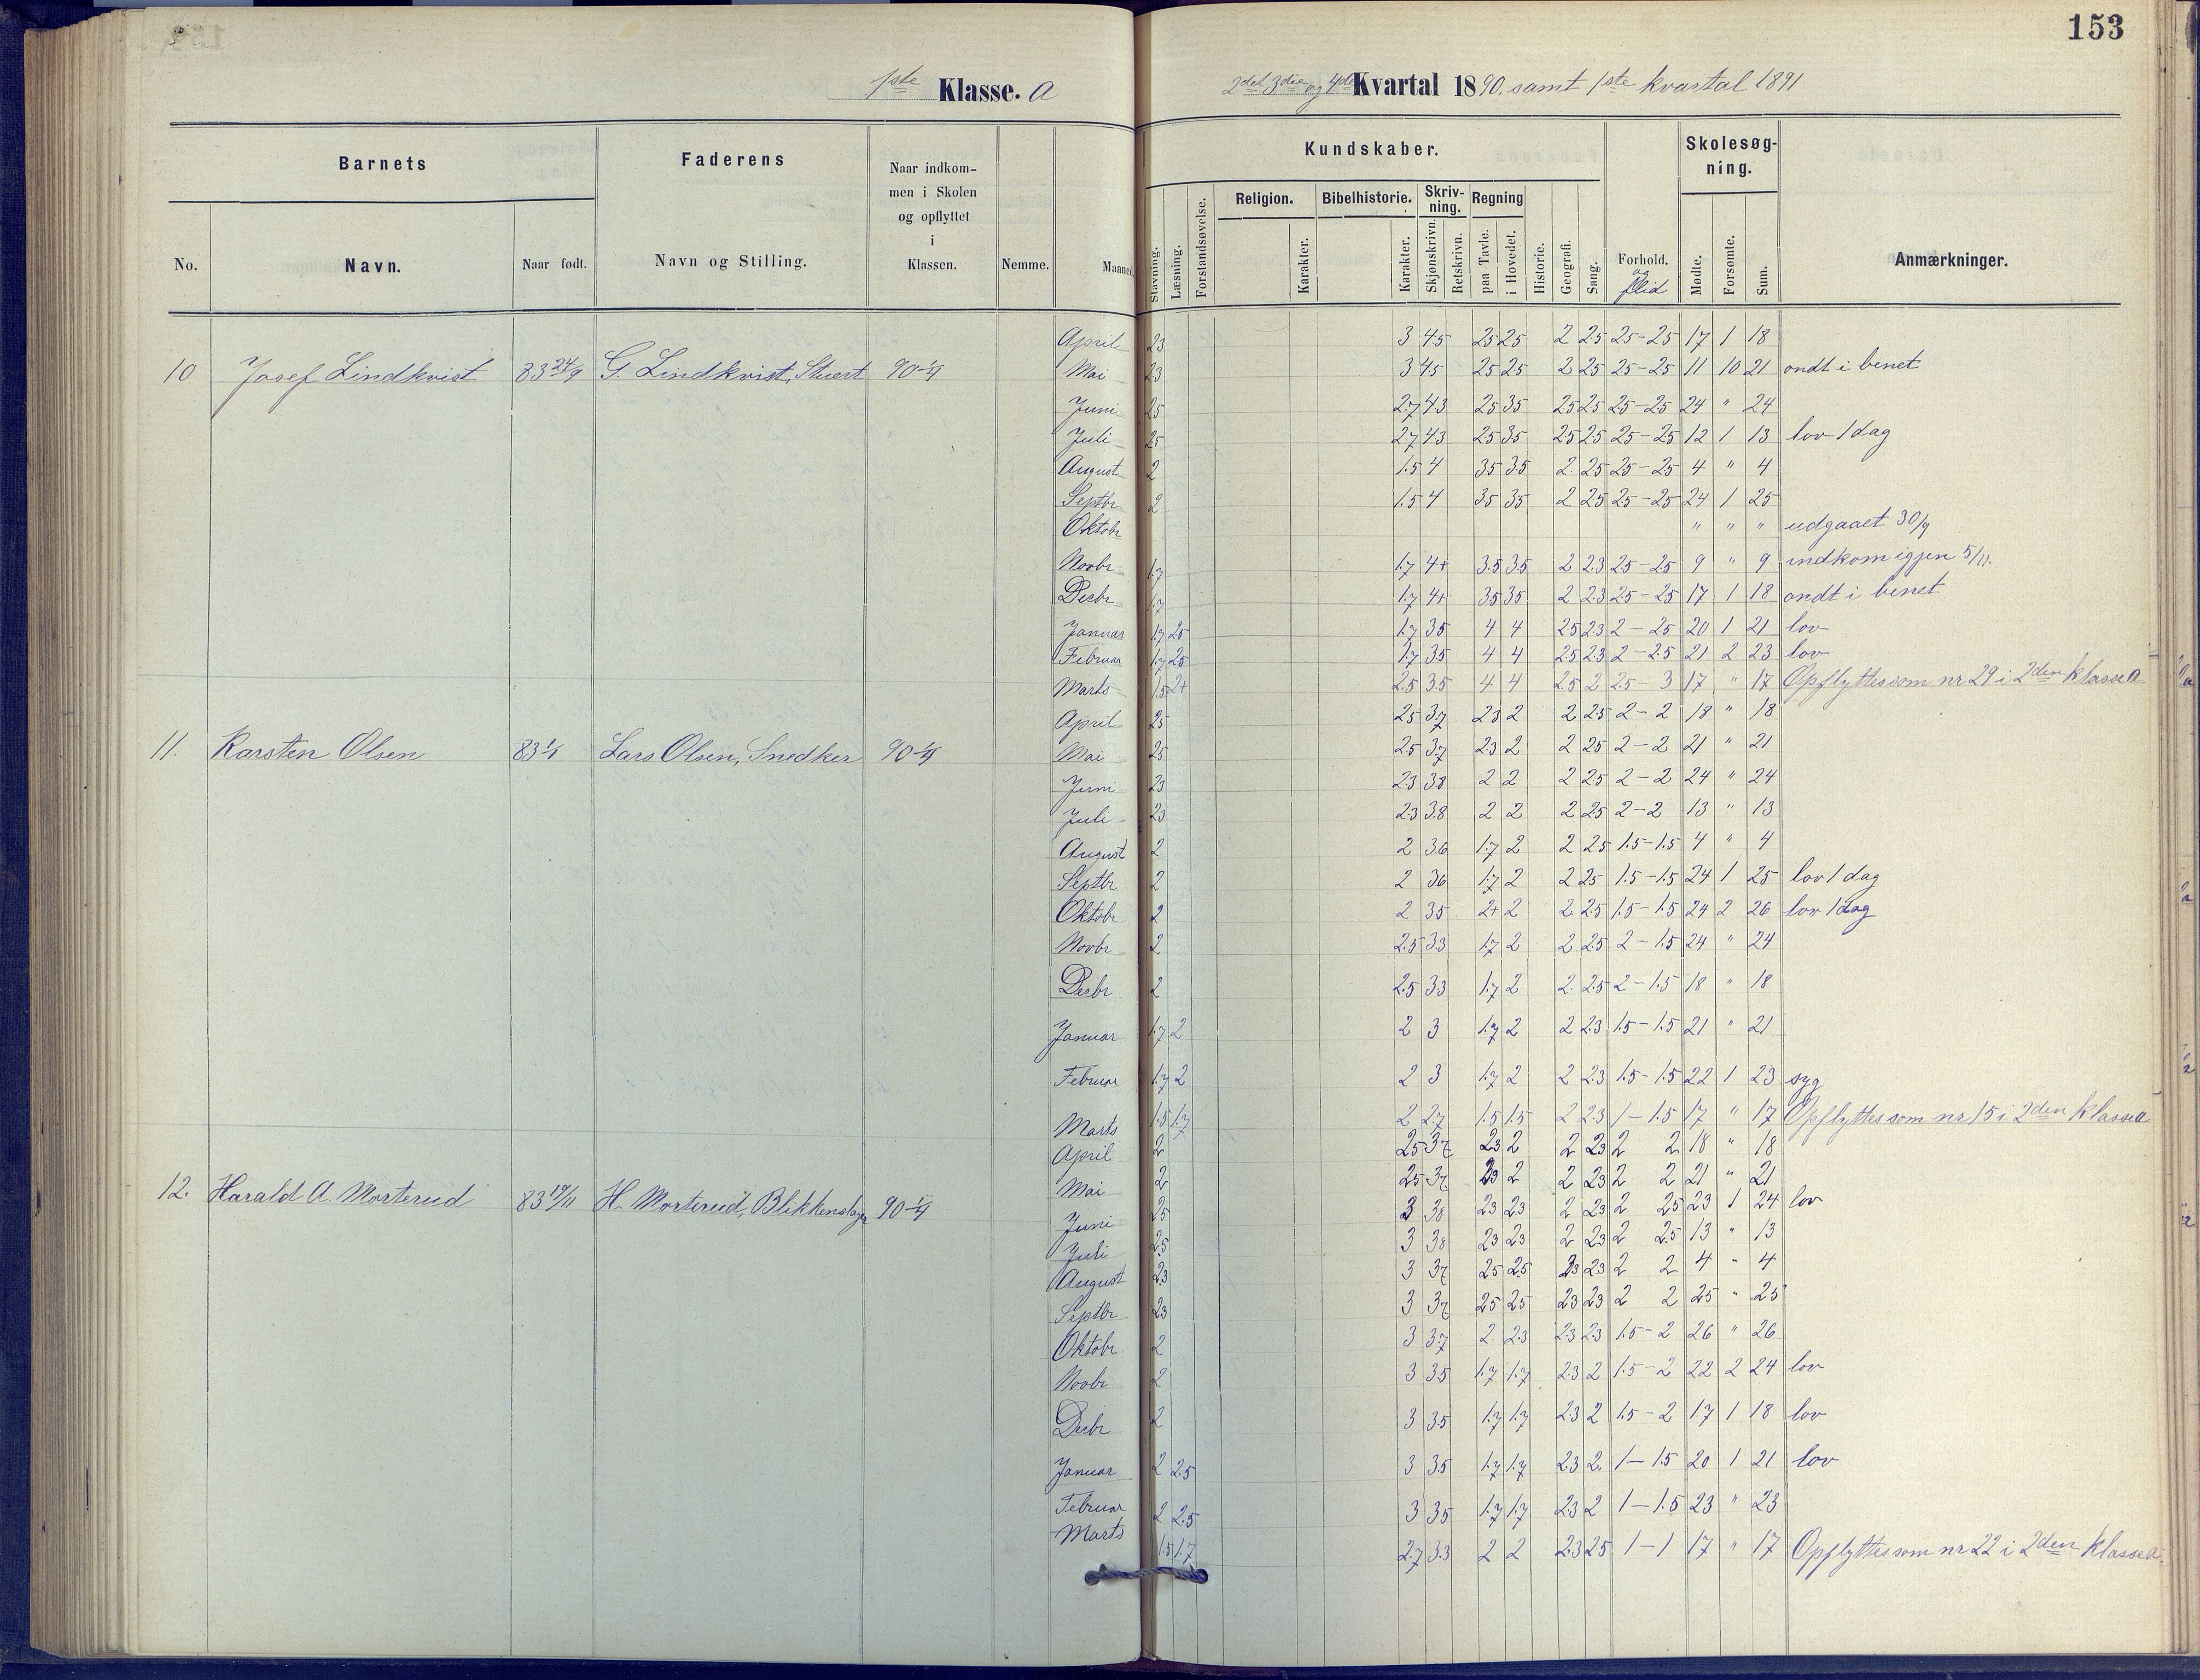 153
1ste Klasse. a
2det 3die og 4de Kvartal 1890. samt 1ste kvartal 1891
Barnets Faderens Naar indkommen i Skolen og opflyttet i Klassen. Nemme. Maaned. Kundskaber. Forhold. og flid Skolesøgning. Anmærkninger.
No. Navn. Naar født. Navn og Stilling.
Stavning. Læsning. Forstandsøvelse. Religion. Karakter. Bibelhistorie. Karakter. Skrivning. Skjønskrivn. Retskrivn. Regning paa Tavle. i Hovedet. Historie. Geografi. Sang. Mødte. Forsømte. Sum.
April 23 3 45 25 25 2 25 25-25 17 1 18
10 Josef Lindkvist 83 24/9 G. Lindkvist, Stuert 90 1/4 Mai 23 3 45 25 25 2 25 25-25 11 10 21 ondt i benet
Juni 25 2.7 43 25 35 25 25 25-25 24 " 24
Juli 25 2.7 43 25 35 25 25 25-25 12 1 13 lov 1 dag
August 2 1.5 4 35 35 2 25 25-25 4 " 4
Septbr 2 1.5 4 35 35 2 25 25-25 24 1 25
Oktobr " " " udgaaet 30/9
Novbr 1.7 1.7 4+ 3.5 3.5 2 23 25-25 9 " 9 indkom igjen 5/11.
Decbr 1.7 1.7 4+ 35 35 2 23 25-25 17 1 18 ondt i benet
Januar 1.7 25 1.7 35 4 4 25 23 2-25 20 1 21 lov
Februar 1.7 25 1.7 35 4 4 25 23 2-2.5 21 2 23 lov
Marts 1.5 2+ 2.5 35 4 4 25 2 2.5-3 17 " 17 Opflyttes som nr 29 i 2den klasse a
April 25 25 3.7 23 2 2 25 2-2 18 " 18
11. Karsten Olsen 83 Lars Olsen, Snedker 90 1/4 Mai 25 25 3.7 23 2 2 25 2-2 21 " 21
Juni 23 23 38 2 2 2 25 2-2 24 " 24
Juli 23 23 3.8 2 2 2 25 2-2 13 " 13
August 2 2 36 1.7 2 2 25 1.5-1.5 4 " 4
Septbr 2 2 36 1.7 2 2 25 1.5-1.5 24 1 25 lov 1 dag
Oktobr 2 2 35 2+ 2 2 25 1.5-1.5 24 2 26 lov 1 dag
Novbr 2 2.5 33 1.7 2 2 25 2-1.5 24 " 24
Decbr 2 2.5 33 1.7 2 2 2.5 2-1.5 18 " 18
Januar 1.7 2 2 3 1.7 2 2 23 1.5-1.5 21 " 21
Februar 1.7 2 2 3 1.7 2 2 23 1.5-1.5 22 1 23 syg
Marts 1.5 1.7 2 2.7 1.5 1.5 2 2.3 1-1.5 17 " 17 Opflyttes som nr 15 i 2den klasse a
April 2 25 37 23 2 2 23 2 2 18 " 18
Mai 2 25 37 23 2 2 23 2 2 21 " 21
12. Harald A. Morterud 83 19/11 H. Morterud, Blikkenslager 90 1/4 Juni 25 3 38 23 23 2 23 2 25 23 1 24 lov
Juli 25 3 38 23 23 2 23 2 25 13 " 13
August 23 3 37 25 25 23 23 2 2 4 " 4
Septbr 23 3 37 25 25 23 23 2 2 25 " 25
Oktobr 2 3 3.7 2 23 23 23 1.5-2 26 " 26
Novbr 2 3 35 1.7 1.7 23 2 1.5-2 22 2 24 lov
Decbr 2 3 35 1.7 1.7 23 2 1.5-2 17 1 18 lov
Januar 2 2.5 3 35 1.7 1.7 23 2 1-1.5 20 1 21 lov
Februar 2 2.5 3 35 1.7 1.7 23 2 1-1.5 23 " 23
Marts 1.5 1.7 2.7 3.3 2 2 23 25 1-1 17 " 17 Opflyttes som nr 22 i 2den klasse a.